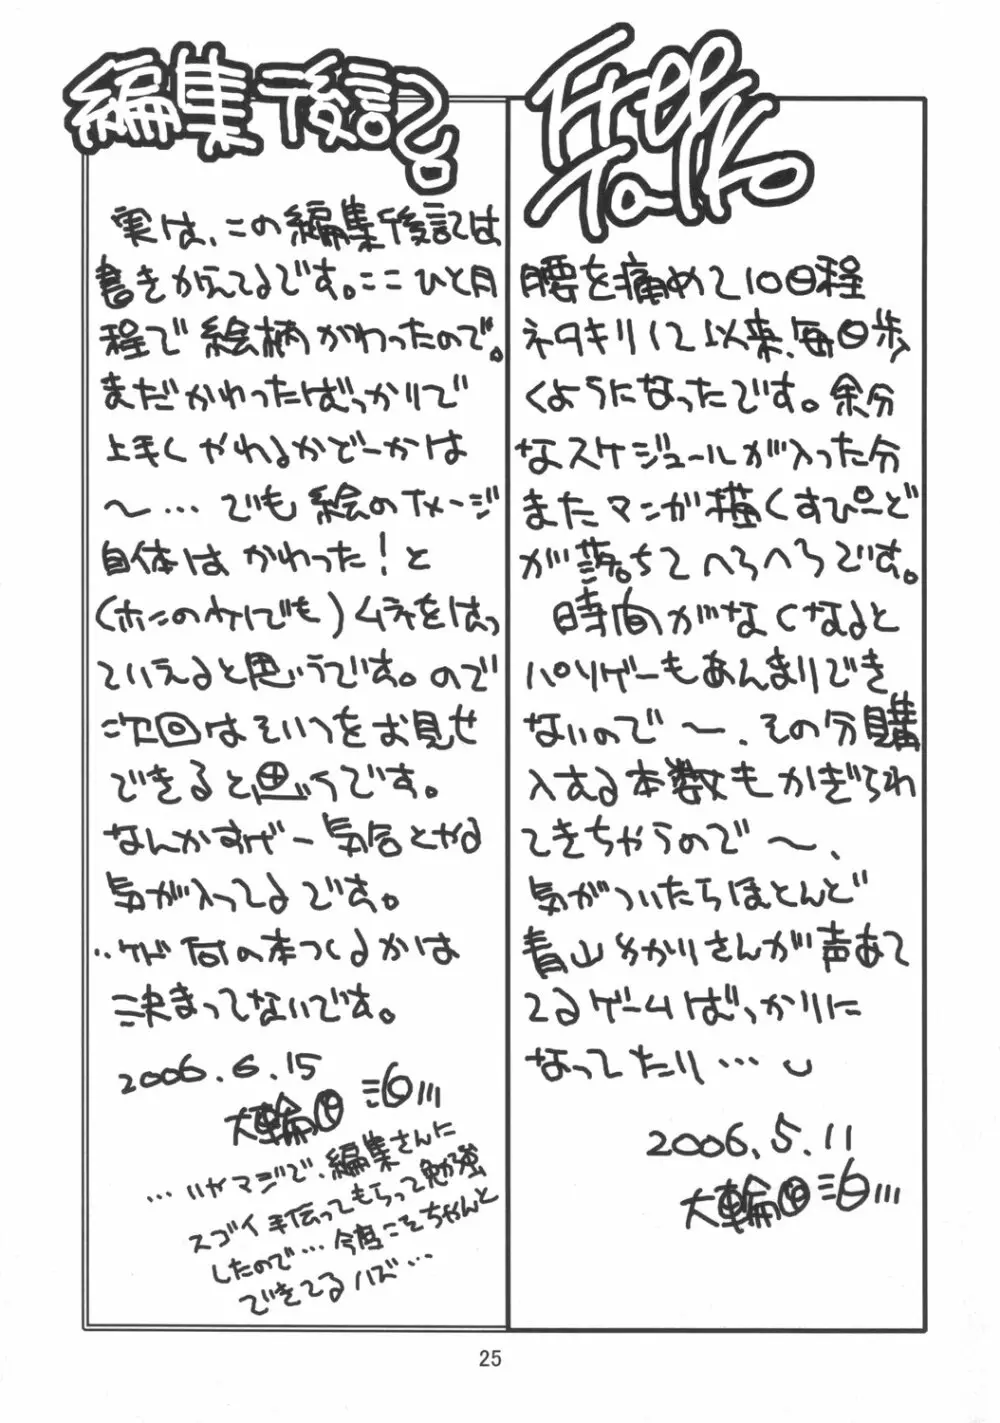 Free
Talk
腰を痛めて10日程
ネタキリして以来、毎日歩
くようになったです。余分
なスケジュールが入った分
またマンガ描くすぴーど
が落ちてへろへろです。
時間がなくなると
パソゲーもあんまりでき
ないので〜、その分購
入する本数もかぎられ
てきちゃうので〜、
気がついたらほとんど
青山ゆかりさんが声あて
てるゲームばっかりに
なってたり…
2006.5.11
大輪田 泊
編集後記。
実は、この編集後記は
書きかえてるです。ここひと月
程で絵柄かわったので。
まだかわったばっかりで
上手くやれるかどーかは
〜…でも絵のイメージ
自体はかわった!と
(ホンのケドでも)ムネをはっ
ていえると思うです。ので
次回はそいつをお見せ
できると思うです。
なんかすげー気合とやる
気が入ってるです。
…ケド何の本つくるかは
決まってないです。
2006.6.15
大輪田 泊
…いやマジで、編集さんに
スゴイ手伝ってもらって勉強
したので…今度こそちゃんと
できてるハズ…
25